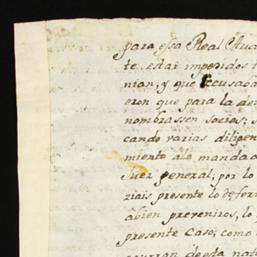 para essa Real Aua
te, estar impedidos
nian, y que recusaba
eron que para la de
nombrassen socios; s
cando varias diligen
miento alo manda
Juez general; por lo
riais presente lo de fer
abien preveniros, lo
presente caso, como
curran de esta nat